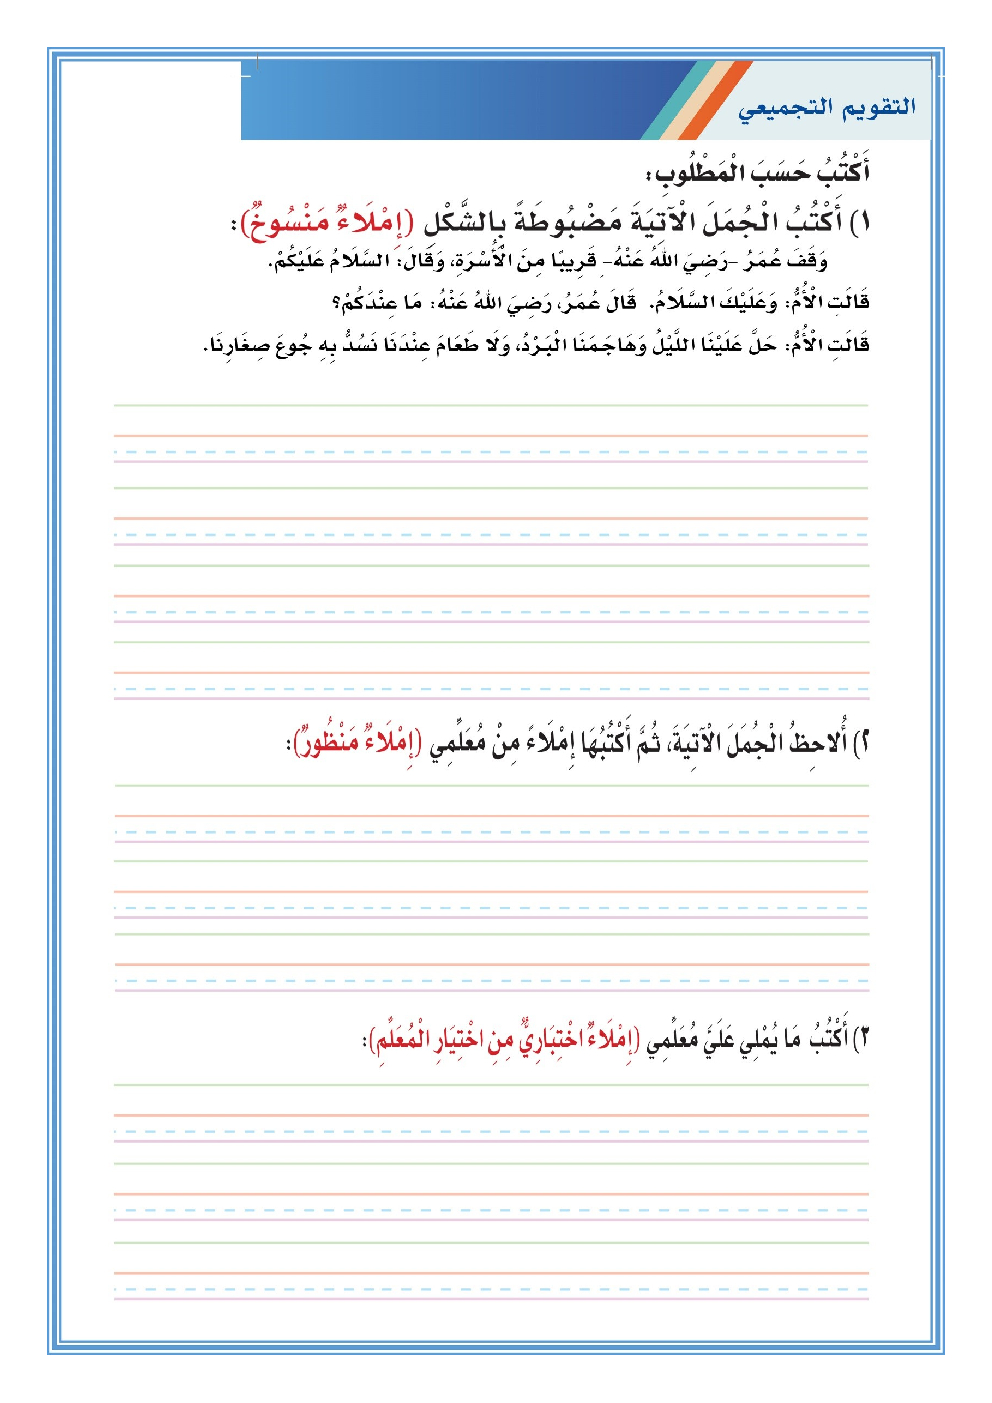 التقويم التجميعي
أَكْتُبُ حَسَبَ الْمَطْلُوبِ:
١) أَكْتُبُ الْجُمَلَ الْآتِيَةَ مَضْبُوطَةً بِالشَّكْلِ (إِمْلَاءٌ مَنْسُوخٌ):
وَقَفَ عُمَرُ -رَضِيَ اللهُ عَنْهُ- قَرِيبًا مِنَ الْأُسْرَةِ، وَقَالَ: السَّلَامُ عَلَيْكُمْ.
قَالَتِ الْأُمُّ: وَعَلَيْكَ السَّلَامُ. قَالَ عُمَرُ، رَضِيَ اللهُ عَنْهُ: مَا عِنْدَكُمْ؟
قَالَتِ الْأُمُّ: حَلَّ عَلَيْنَا اللَّيْلُ وَهَاجَمَنَا الْبَرْدُ، وَلَا طَعَامَ عِنْدَنَا نَسُدُّ بِهِ جُوعَ صِغَارِنَا.
٢) أُلاحِظُ الْجُمَلَ الْآتِيَةَ، ثُمَّ أَكْتُبُهَا إِمْلَاءً مِنْ مُعَلِّمِي (إِمْلَاءٌ مَنْظُورٌ):
٣) أَكْتُبُ مَا يُمْلِي عَلَيَّ مُعَلِّمِي (إِمْلَاءٌ اخْتِبَارِيٌّ مِنِ اخْتِيَارِ الْمُعَلِّمِ):